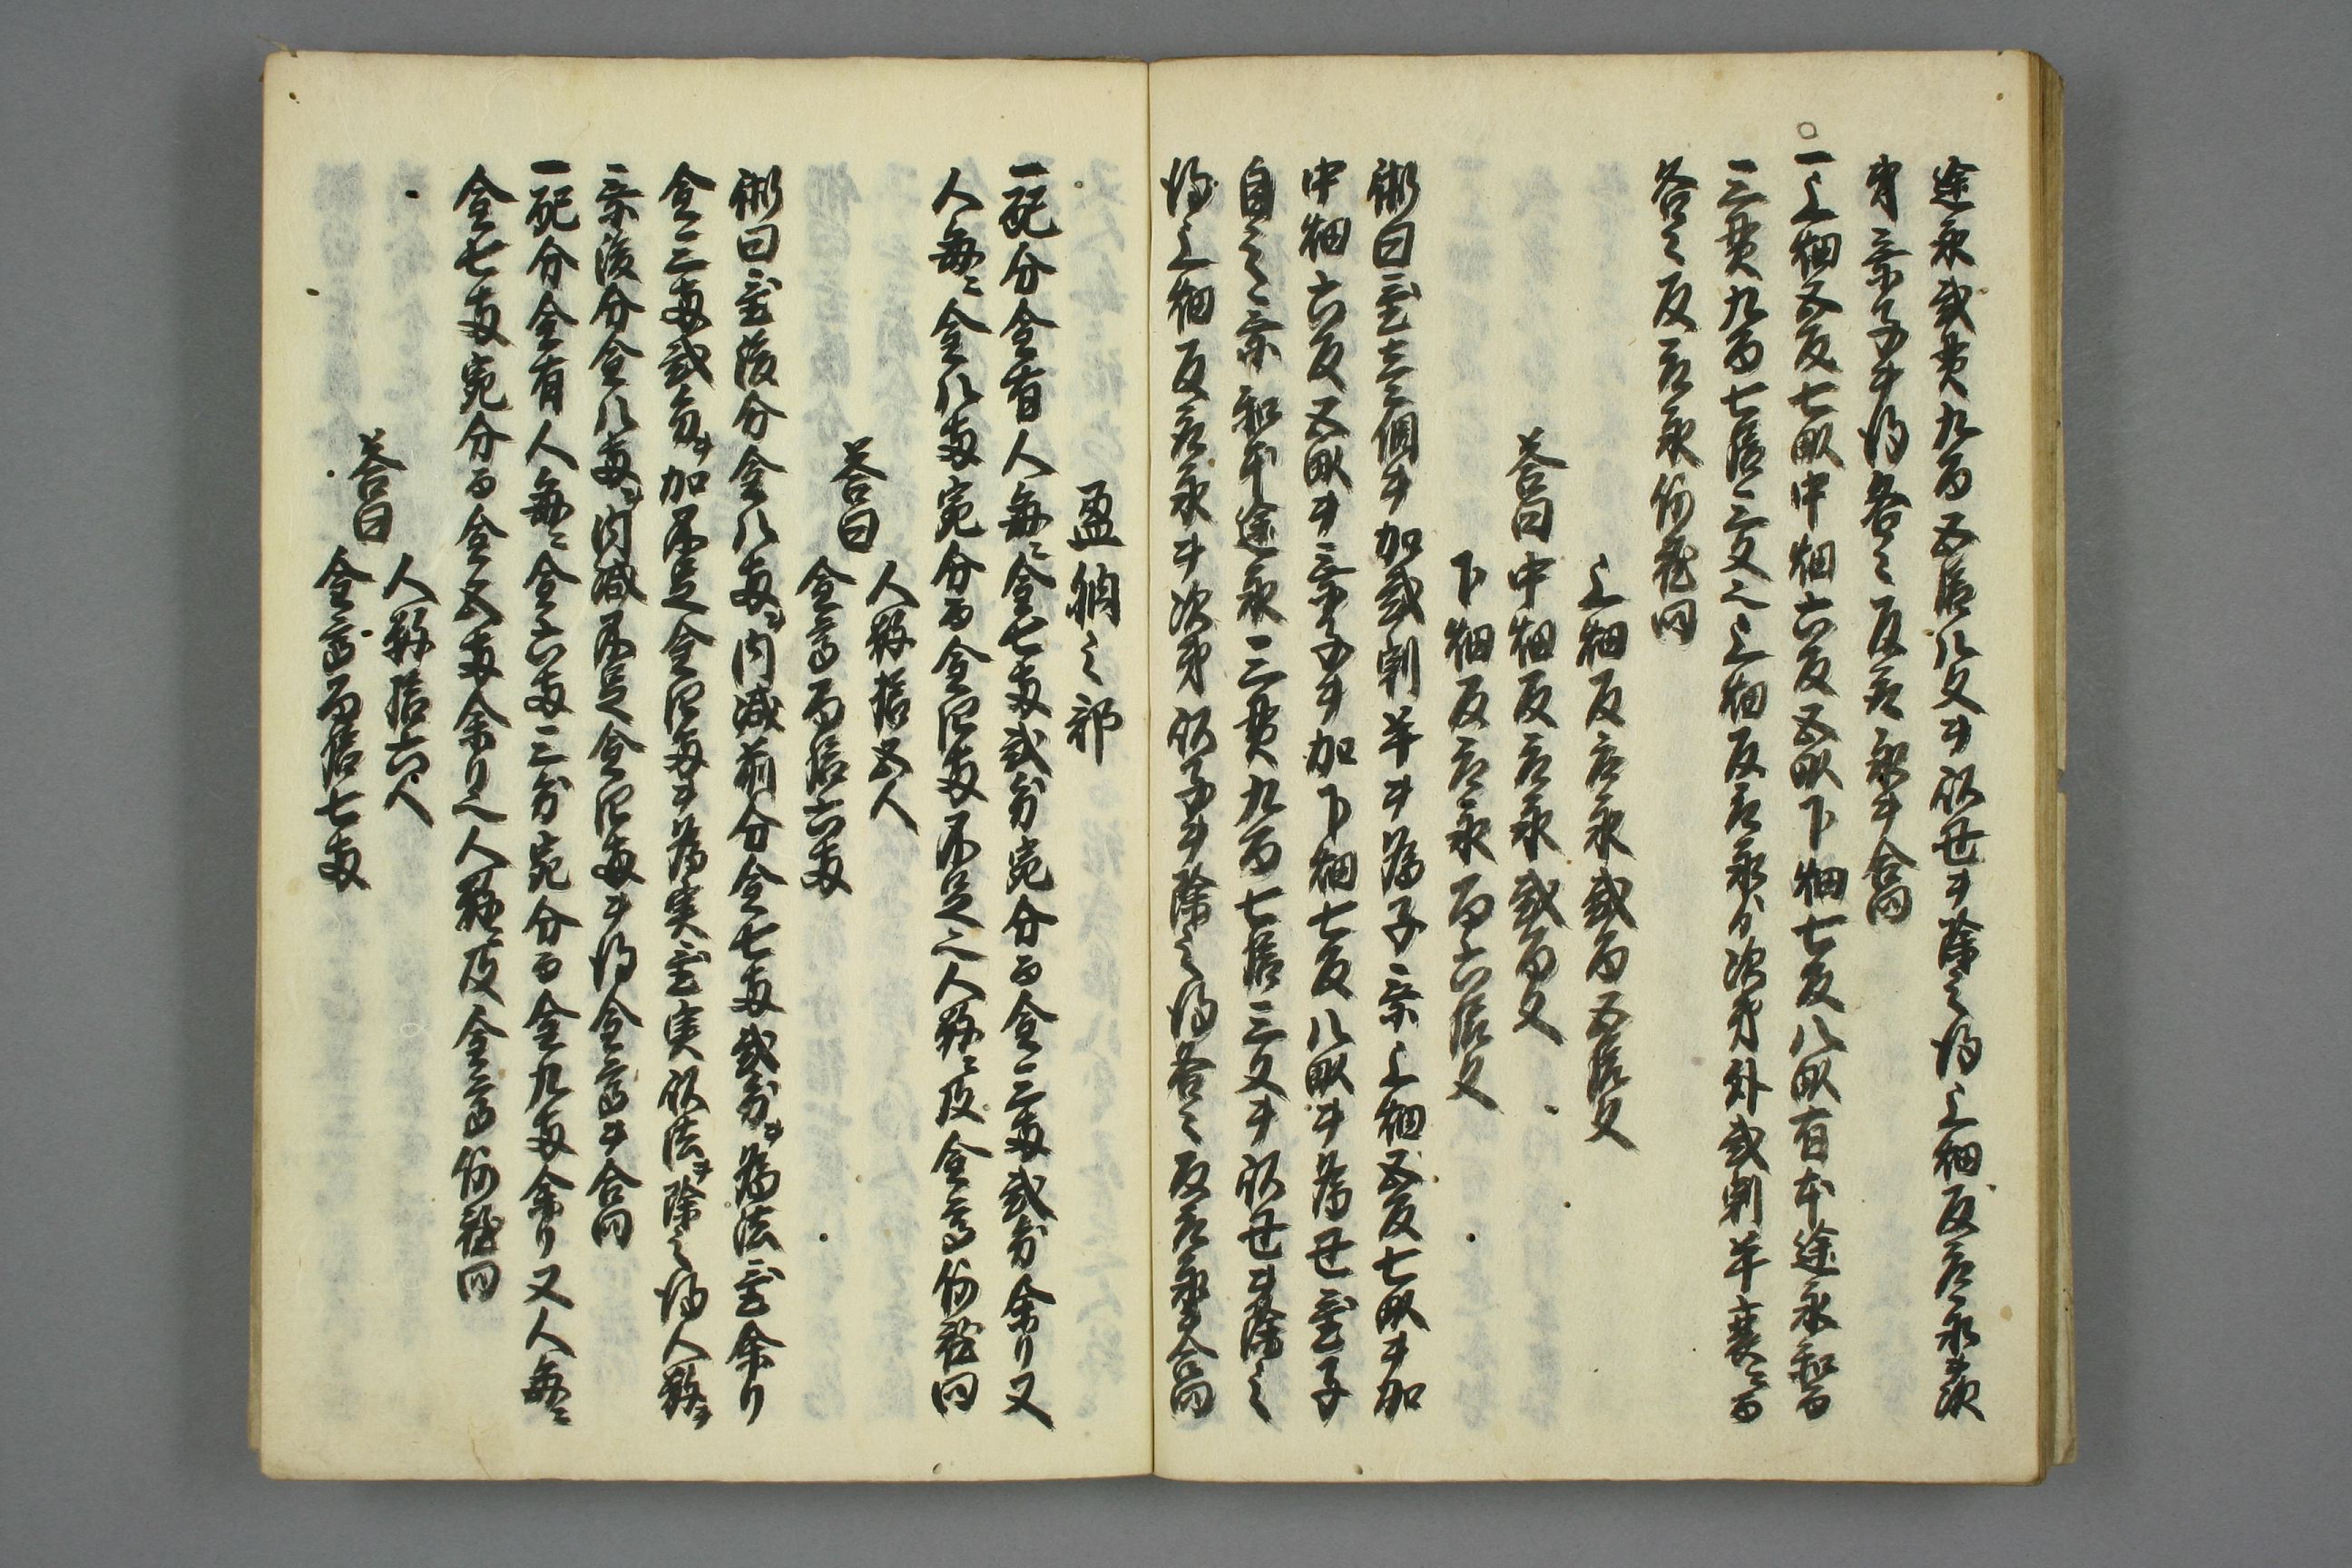 途永弐貫九百五拾八文ヲ以母ヲ除之得上畑反取永ヲ次
弟乗子ヲ得各々反取永ヲ合問
一上畑五反七畝中畑六反五畝下畑七反八畝有本途永和而
三貫九百七拾三文之上畑反取永ゟ次弟外弐割半衰ニ而
各々反取永何程問
上畑反取永弐百五拾文
答曰中畑反取永弐百文
下畑反取永百六拾文
術曰置壱個ヲ加弐割半ヲ為子乗上畑五反七畝ヲ加
中畑六反五畝ヲ乗子ヲ加下畑七反八畝ヲ為母置子
自之乗和本途永三貫九百七拾三文ヲ以母ヲ除之
得上畑反取永ヲ次弟以子ヲ除之得各々反取永ヲ合問
盈朒之部
一配分金有人毎ニ金七両弐分宛分而金三両弐分余り又
人毎ニ金八両宛分而金四両不足之人数ニ及金高何程問
人数拾五人
答曰
金高百拾六両
術曰置後分金八両ヲ内減前分金七両弐分ヲ為法置余り
金三両弐分ヲ加不足金四両ヲ為実置実以法ヲ除之得人数ヲ
乗後分金八両ヲ内減不足金四両ヲ得金高ヲ合問
一配分金有人毎ニ金六両三分宛分而金九両余り又人毎ニ
金七両宛分而金五両余り之人数及金高何程問
人数拾六人
答曰
金高百拾七両